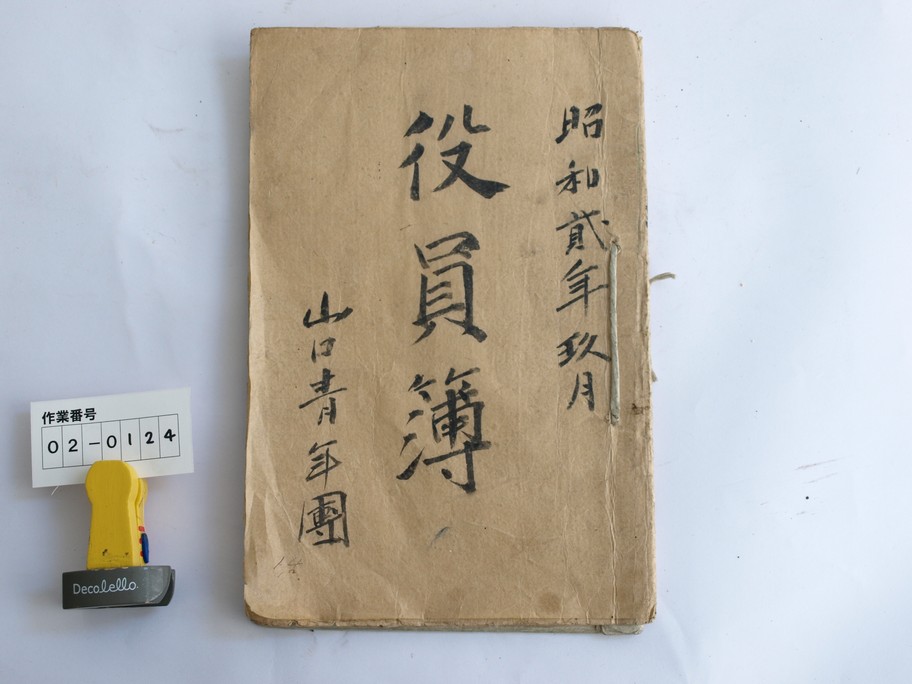 昭和貳年玖月
役員簿
山口青年團
作業番号
02-0124
Decolello